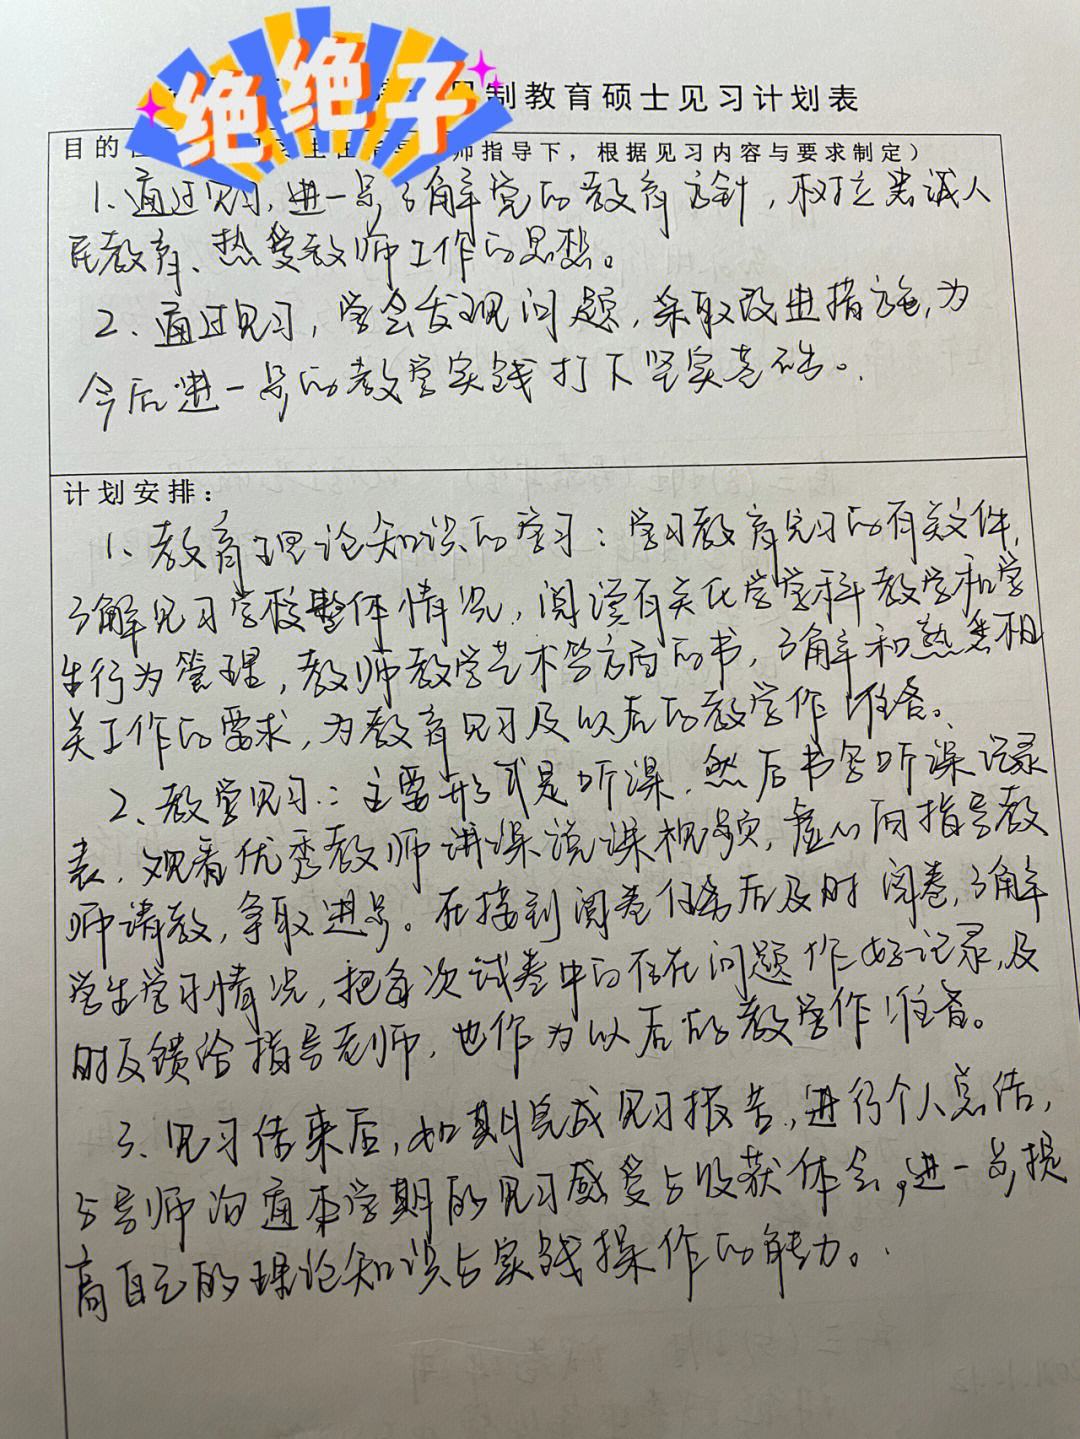 绝绝子
制教育硕士见习计划表
目的
师指导下，根据见习内容与要求制定）
1、通过见习，进一步了解党的教育方针，树立忠诚人
民教育、热爱教师工作的思想。
2、通过见习，学会发现问题，采取改进措施，为
今后进一步的教学实践打下坚实基础。
计划安排：
1、教育理论知识的学习：学习教育见习的有关文件，
了解见习学校整体情况，阅读有关化学学科教学和学
生行为管理，教师教学艺术等方面的书，了解和熟悉相
关工作的要求，为教育见习及以后的教学作准备。
2、教学见习：主要形式是听课，然后书写听课记录
表，观看优秀教师讲课说课视频，虚心向指导教
师请教，争取进步。在接到阅卷任务后及时阅卷，了解
学生学习情况，把每次试卷中的存在问题作好记录，及
时反馈给指导老师，也作为以后的教学作准备。
3、见习结束后，如期完成见习报告，进行个人总结，
与导师沟通本学期的见习感受与收获体会，进一步提
高自己的理论知识与实践操作的能力。